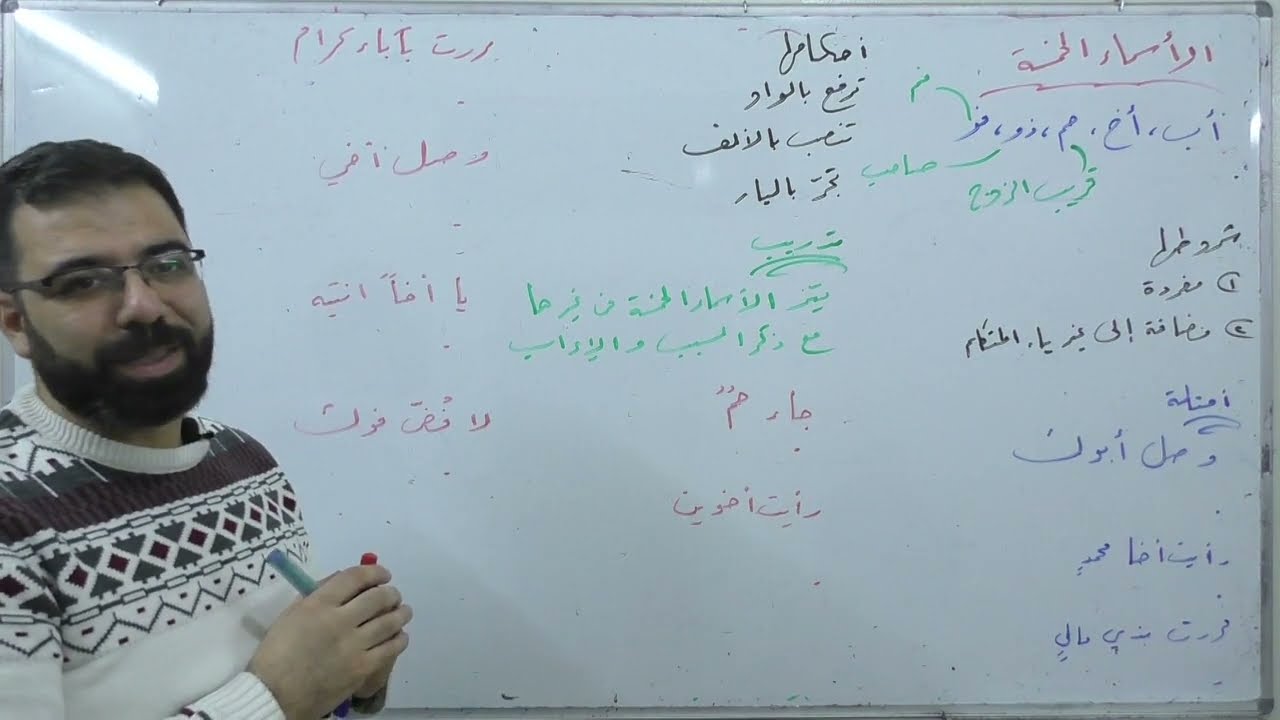 الأسماء الخمسة
فم
أب، أخ، حم، ذو، فو
صاحب
قريب الزوج
شروطها
① مفردة
② مضافة إلى غير ياء المتكلم
أمثلة
وصل أبوك
رأيت أخا محمدٍ
مررت بذي مالٍ
أحكامها
ترفع بالواو
تنصب بالألف
تجرّ بالياء
تدريب
ميّز الأسماء الخمسة من غيرها
مع ذكر السبب والإعراب
جاء حمٌ
رأيت أخوين
مررت بآباء كرام
وصل أخي
يا أخاً انتبه
لا فُضّ فوك